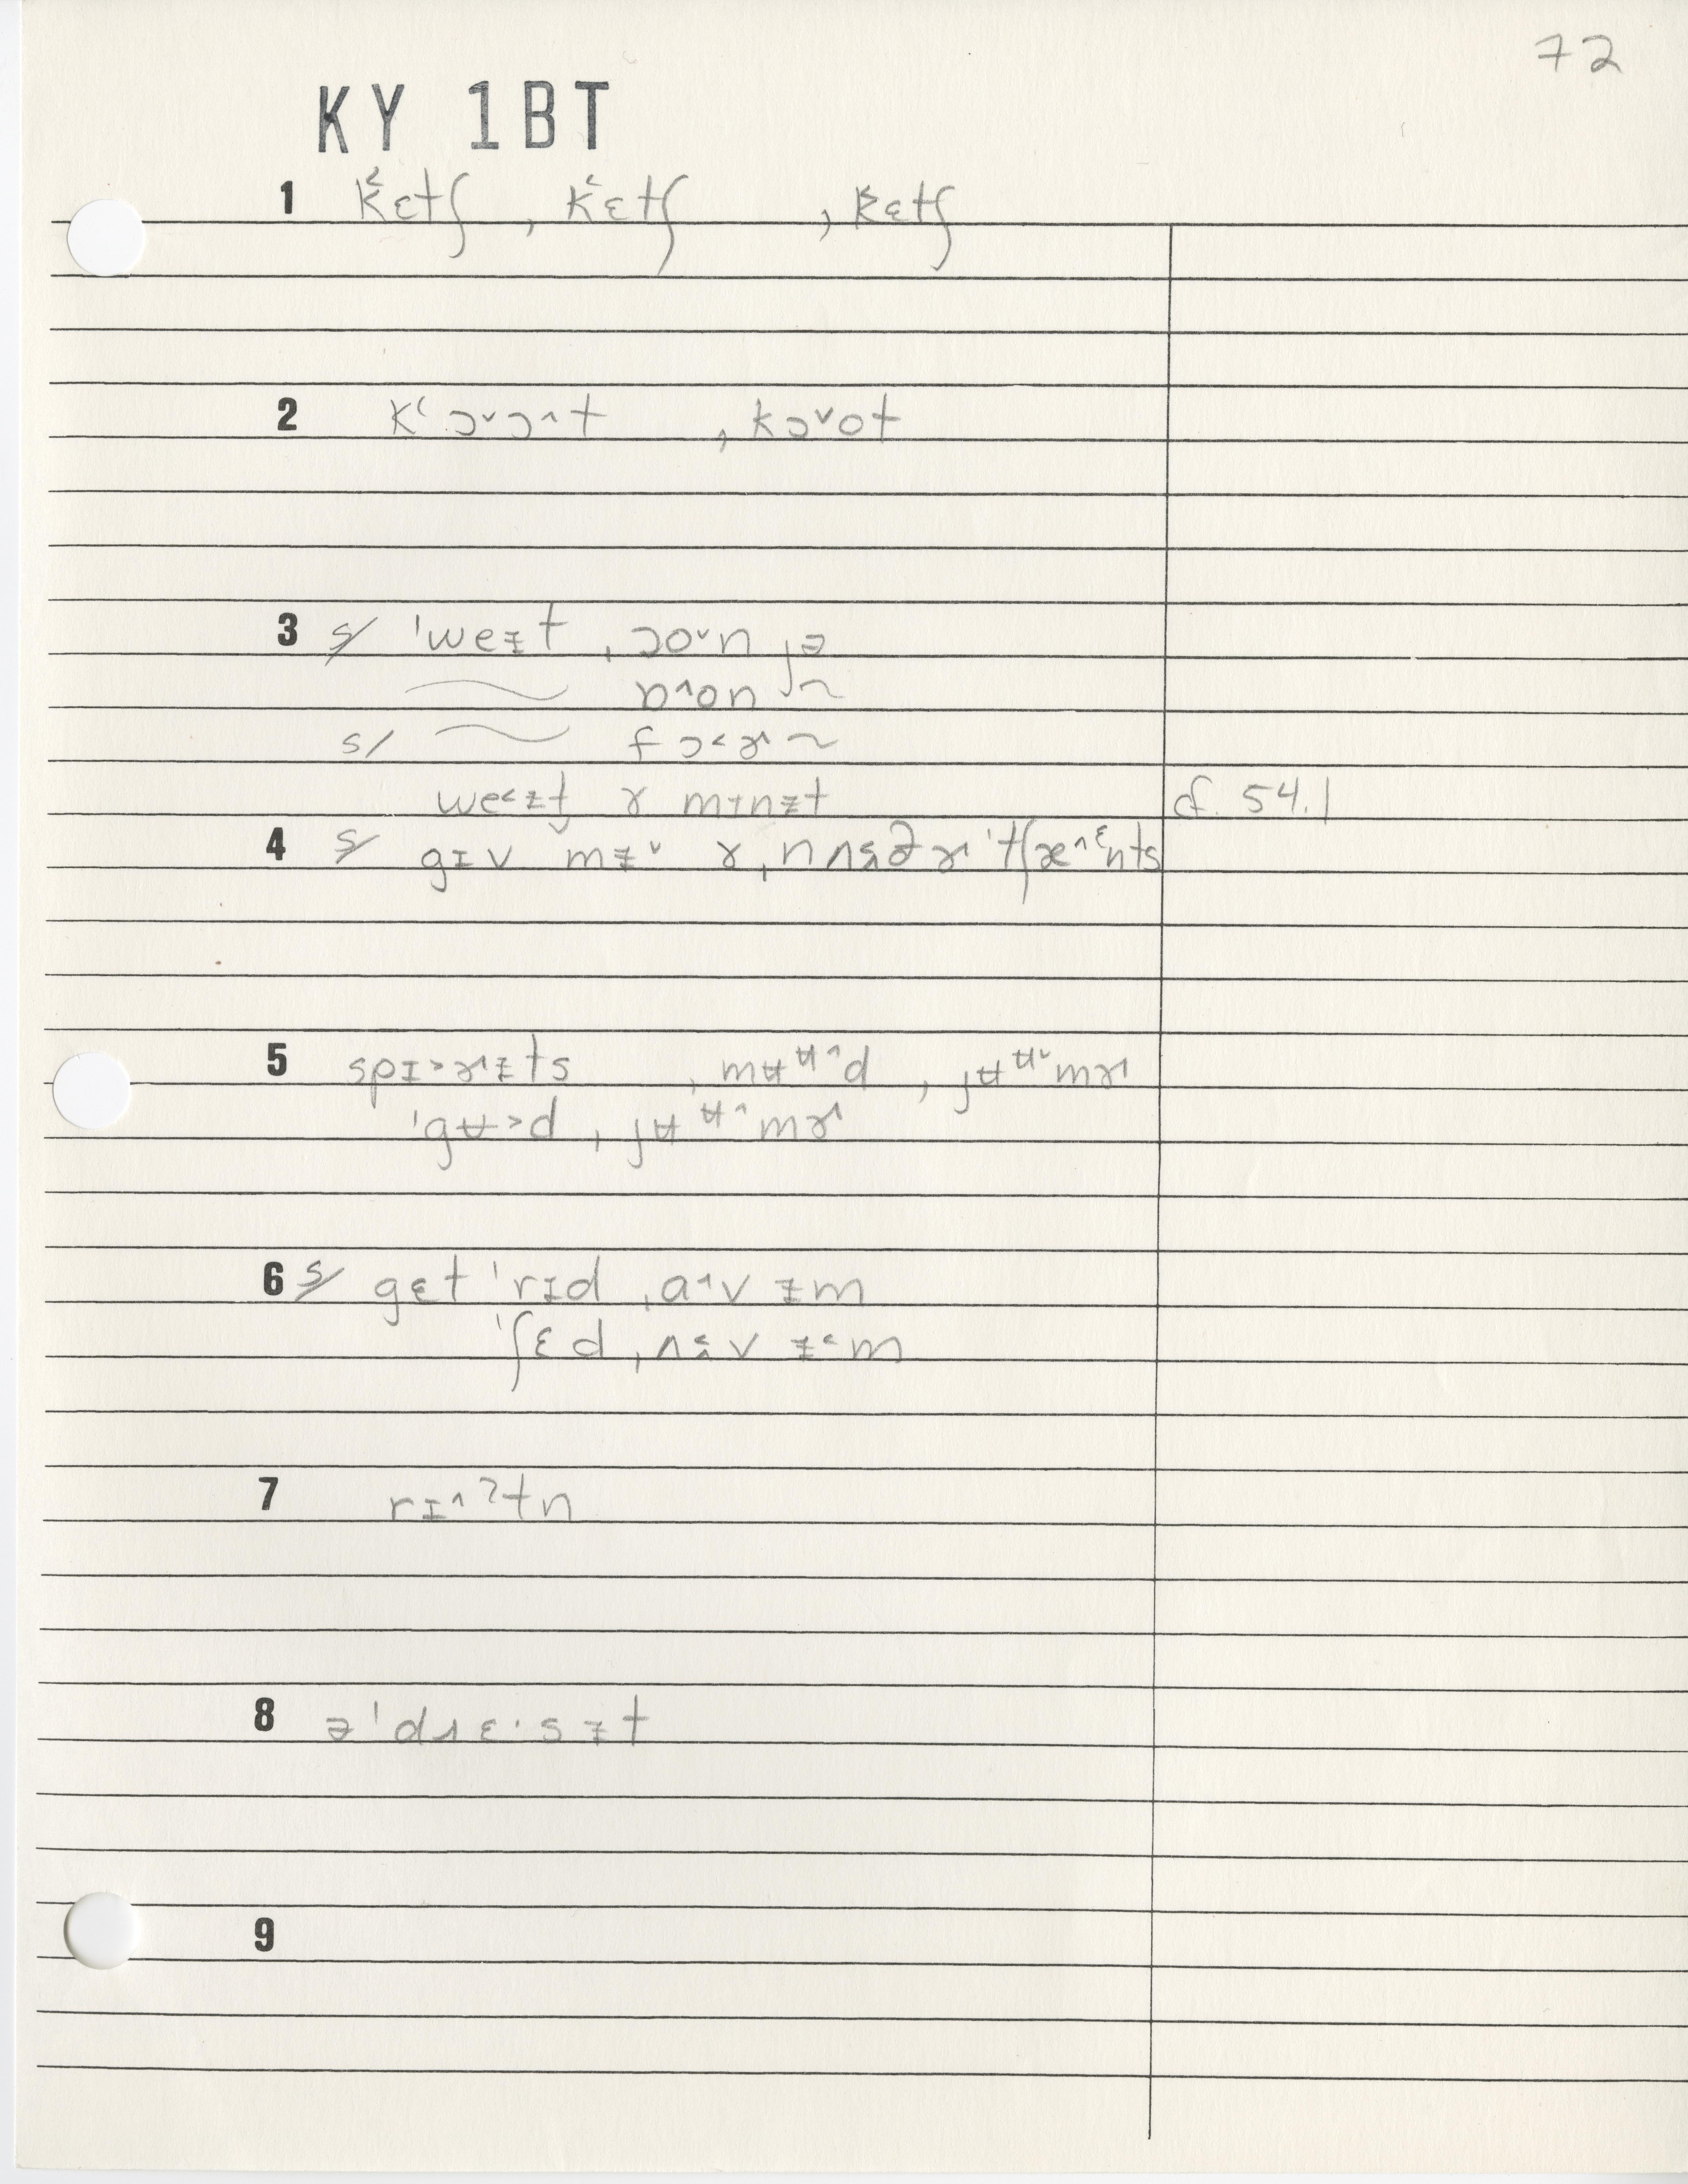 72
KY 1BT
1 k̔ɛtʃ , k̔ɛtʃ , k̔ɛtʃ
2 k‘ɔ˅ɔ˄t , kɔ˅ot
3 s/ ˈweɪ̵t ˌɔo˅n jə
ɒ˄on
s/ fɔ˂ɚ
we˂ɪ̵t ɤ mɪ̵nɪ̵t cf. 54.1
4 s/ gɪv mɪ̵˅ ɤˌnʌðɚ ˈtʃæ˄ᵋnts
5 spɪ˃ɚɪ̵ts , mʉᵾ˄d , jʉᵾ˅mɚ
ˈgʉ˃d , jʉᵾ˄mɚ
6 s/ gɛt ˈrɪd ˌɑ˄v ɪ̵m
ˈʃɛd ˌʌv ɪ̵˂m
7 rɪ˄ʔtn
8 əˈdrɛ·sɪ̵t
9